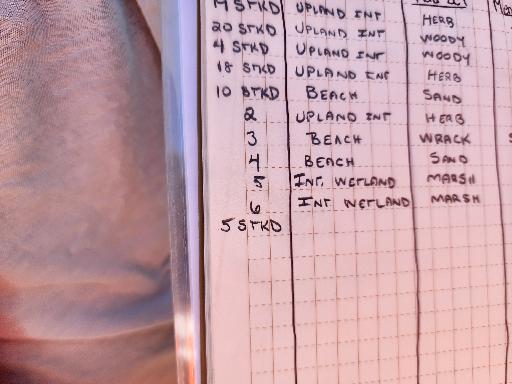 STKD UPLAND INT HERB
20 STKD UPLAND INT WOODY
4 STKD UPLAND INT WOODY
18 STKD UPLAND INT HERB
10 STKD BEACH SAND
2 UPLAND INT HERB
3 BEACH WRACK
4 BEACH SAND
5 INT. WETLAND MARSH
6 INT WETLAND MARSH
5 STKD